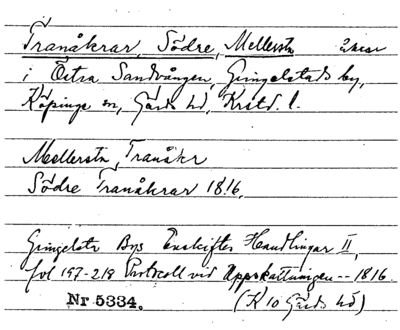 Tranåkrar, Södre, Mellersta åkrar
i Östra Sandvången, Gringelstads by,
Köpinge sn, Gärds hd, Krstd. l.
Mellersta Tranåkr
Södre Tranåkrar 1816.
Gringelsta Bys Enskiftes Handlingar II,
fol 197-218 Protocoll vid Uppskattningen -- 1816
Nr 5334. (K 10 Gärds hd)